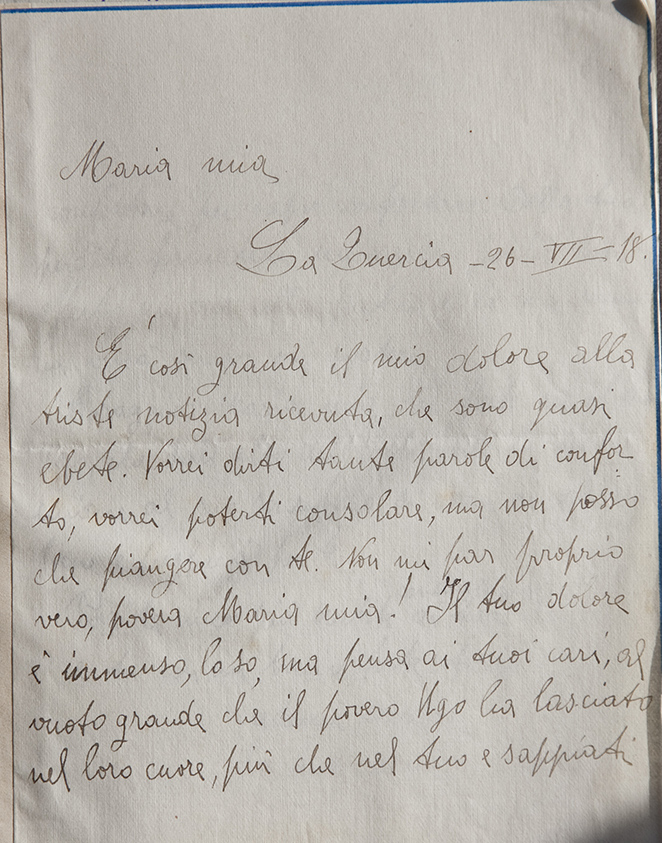 Maria mia
La Quercia - 26 - VII - 18.
E' così grande il mio dolore alla
triste notizia ricevuta, che sono quasi
ebete. Vorrei dirti tante parole di confor
to, vorrei poterti consolare, ma non posso
che piangere con te. Non mi par proprio
vero, povera Maria mia! Il tuo dolore
è immenso, lo so, ma pensa ai tuoi cari, al
vuoto grande che il povero Ugo ha lasciato
nel loro cuore, più che nel tuo e sappiati